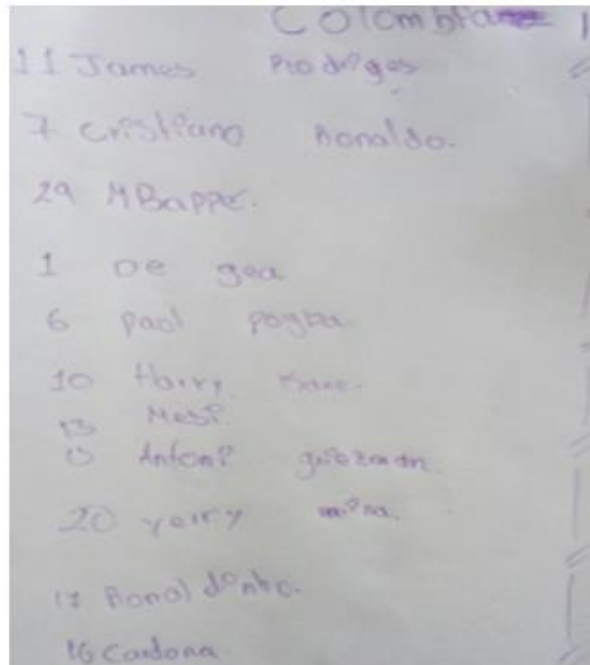 Colombia
11 James Rodriges
7 Cristiano Ronaldo.
29 MBappe.
1 De gea
6 paol pogba
10 Harry Kane.
13 Messi
Antoni griezman
20 yerry mina.
17 Ronaldinho.
16 Cardona